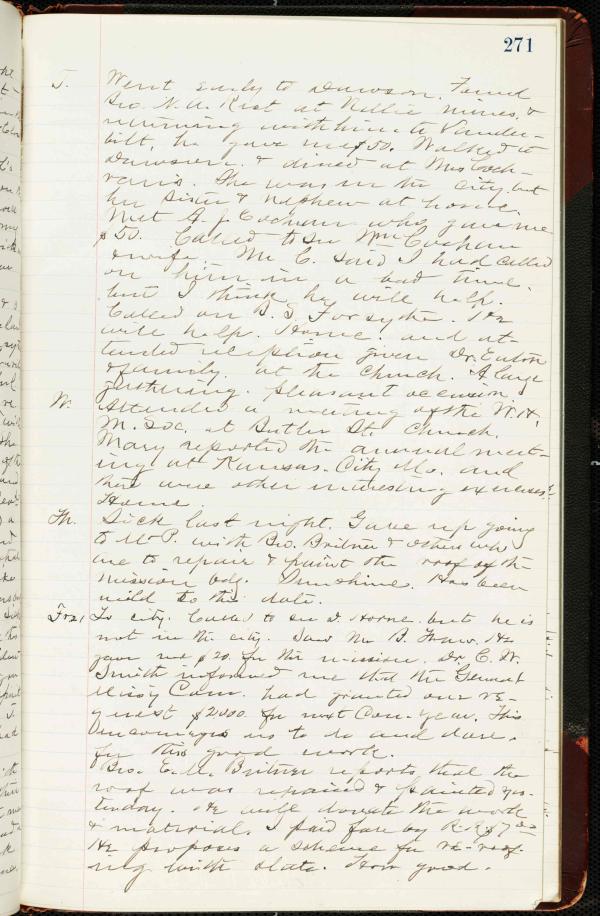 271
T. Went early to Dawson. Found
Bro. N. A. Rist at Nellie mines, &
returning with him to Vander-
bilt, he gave me $50. Walked to
Dawson. & dined at Mrs Coch-
ran's. She was in the city, but
her sister & nephew at home.
Met A. J. Cochran who gave me
$50. Called to see Wm Cochran
& wife. Mr C. said I had called
on him in a bad time.
but I think he will help.
Called on B. S. Forsythe. He
will help. Home. and at-
tended reception given Dr. Eaton
& family. at the church. A large
gathering. pleasant occasion.
W. Attended a meeting of the W. H.
M. Soc. at Butler St. Church.
Mary reported the annual meet-
ing at Kansas City Mo. and
there were other interesting exercises.
Home.
Th. Sick last night. Gave up going
to Mt P. with Bro. Britner & others who
are to repair & paint the roof of the
mission bdg. Sunshine. Has been
mild to this date.
Fri, To city. Called to see D. Horne. but he is
not in the city. Saw Mr B. Thaw. He
gave me $20. for the mission. Dr. C. W.
Smith informed me that the General
Missy Com. had granted our re-
quest $2000. for next Con. Year. This
encourages us to do and dare.
for this good work.
Bro. E. M. Britner reports, that the
roof was repaired & painted yes-
terday. He will donate the work
& material. I paid fare by R.R. $7
He proposes a scheme for re-roof-
ing with slate. How good.